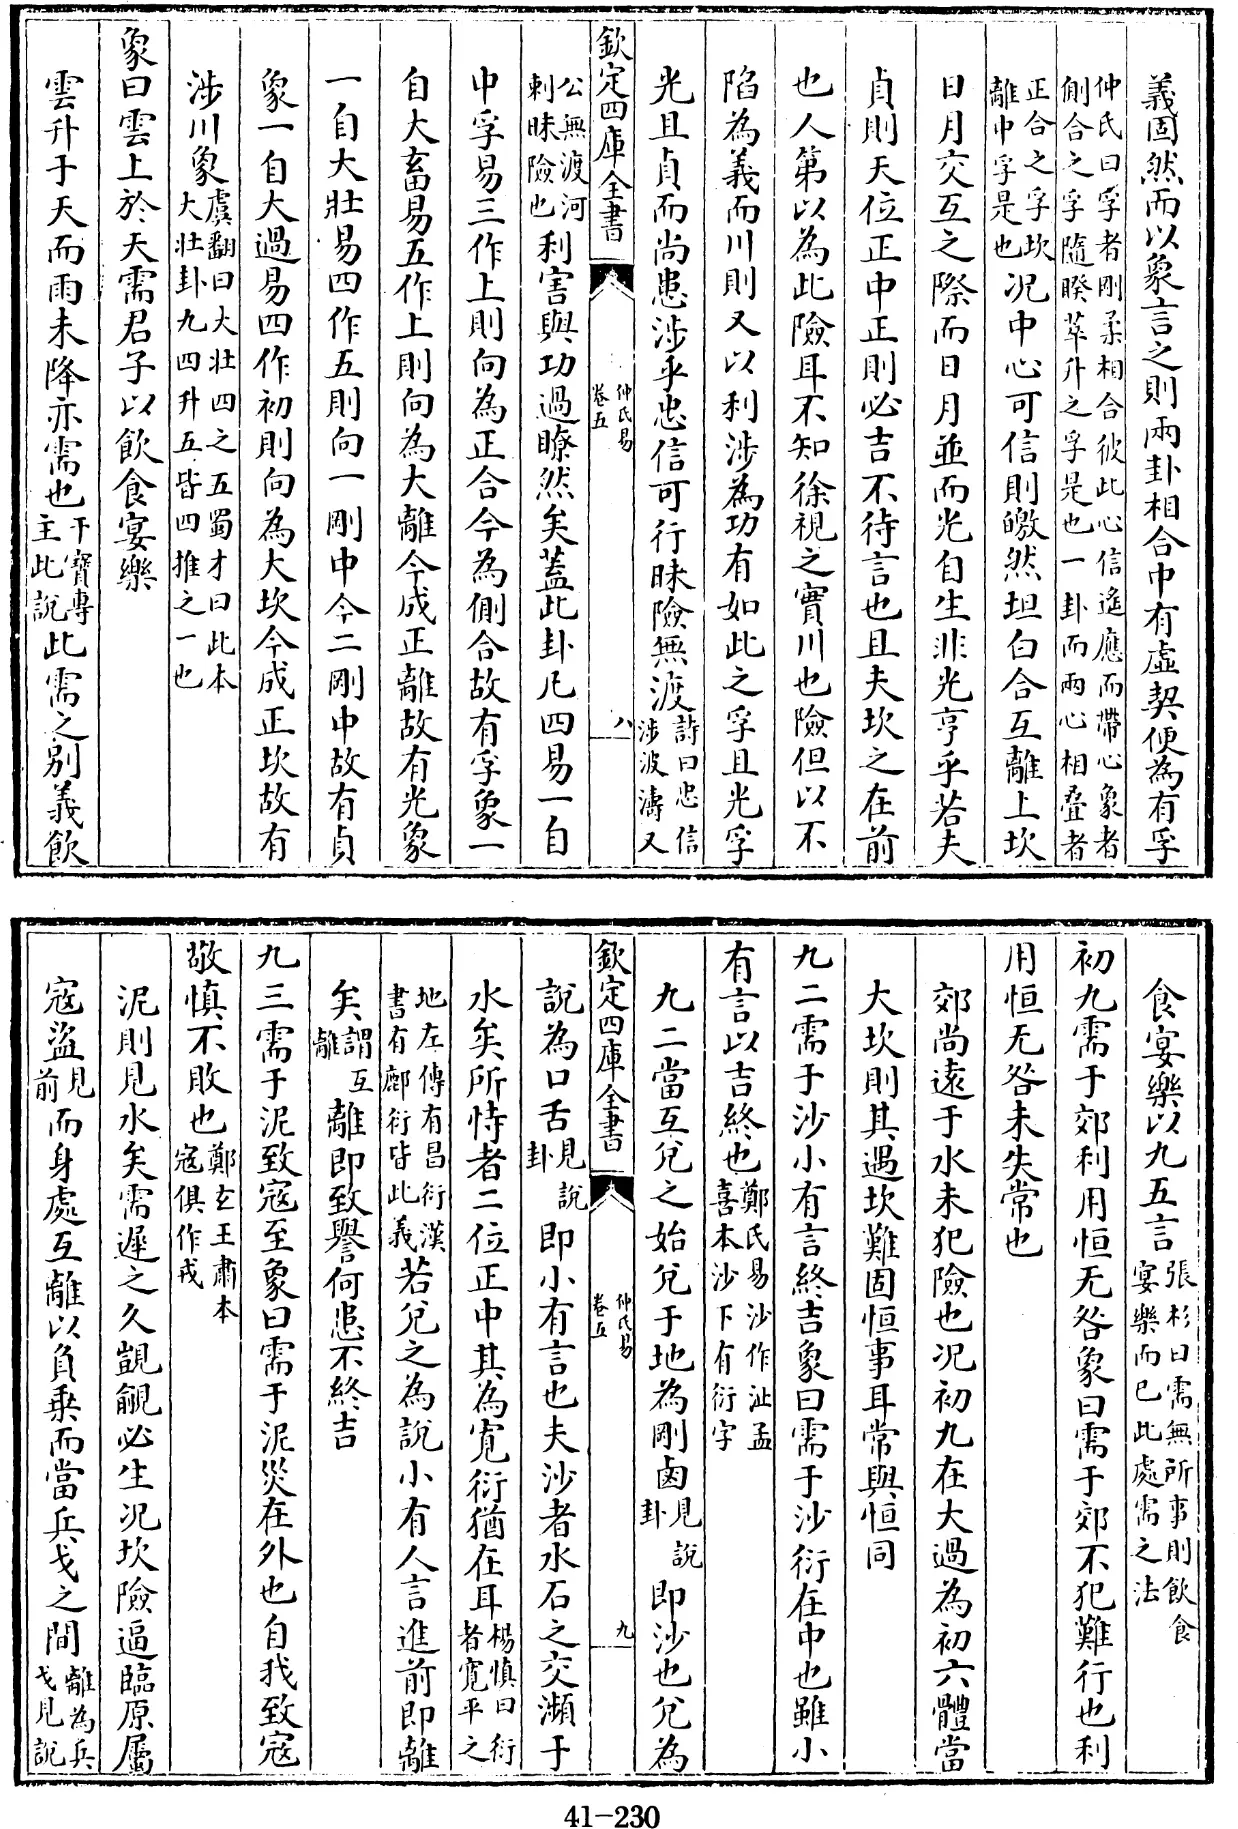 義固然而以象言之則兩卦相合中有虛契便為有孚
仲氏曰孚者剛柔相合彼此心信遙應而帶心象者
側合之孚隨睽萃升之孚是也一卦而兩心相疊者
正合之孚坎
離中孚是也況中心可信則皦然坦白合互離上坎
日月交互之際而日月並而光自生非光亨乎若夫
貞則天位正中正則必吉不待言也且夫坎之在前
也人第以為此險耳不知徐視之實川也險但以不
陷為義而川則又以利涉為功有如此之孚且光孚
光且貞而尚患涉乎忠信可行昧險無渡詩曰忠信
涉波濤又
欽定四庫全書
仲氏易
卷五
八
公無渡河
刺昧險也利害與功過瞭然矣蓋此卦凡四易一自
中孚易三作上則向為正合今為側合故有孚象一
自大畜易五作上則向為大離今成正離故有光象
一自大壯易四作五則向一剛中今二剛中故有貞
象一自大過易四作初則向為大坎今成正坎故有
涉川象虞翻曰大壯四之五蜀才曰此本
大壯卦九四升五皆四推之一也
象曰雲上於天需君子以飲食宴樂
雲升于天而雨未降亦需也干寶專
主此說此需之别義飲
食宴樂以九五言張杉曰需無所事則飲食
宴樂而已此處需之法
初九需于郊利用恒无咎象曰需于郊不犯難行也利
用恒无咎未失常也
郊尚遠于水未犯險也況初九在大過為初六體當
大坎則其遇坎難固恒事耳常與恒同
九二需于沙小有言終吉象曰需于沙衍在中也雖小
有言以吉終也鄭氏易沙作沚孟
喜本沙下有衍字
九二當互兌之始兌于地為剛鹵見說
卦即沙也兌為
欽定四庫全書
仲氏易
卷五
九
說為口舌見說
卦即小有言也夫沙者水石之交瀕于
水矣所恃者二位正中其為寬衍猶在耳楊慎曰衍
者寬平之
地左傳有昌衍漢
書有鄜衍皆此義若兌之為說小有人言進前即離
矣謂互
離離即致譽何患不終吉
九三需于泥致寇至象曰需于泥災在外也自我致寇
敬慎不敗也鄭玄王肅本
寇俱作戎
泥則見水矣需遲之久覬覦必生況坎險逼臨原屬
寇盜見
前而身處互離以負乘而當兵戈之間離為兵
戈見說
41-230